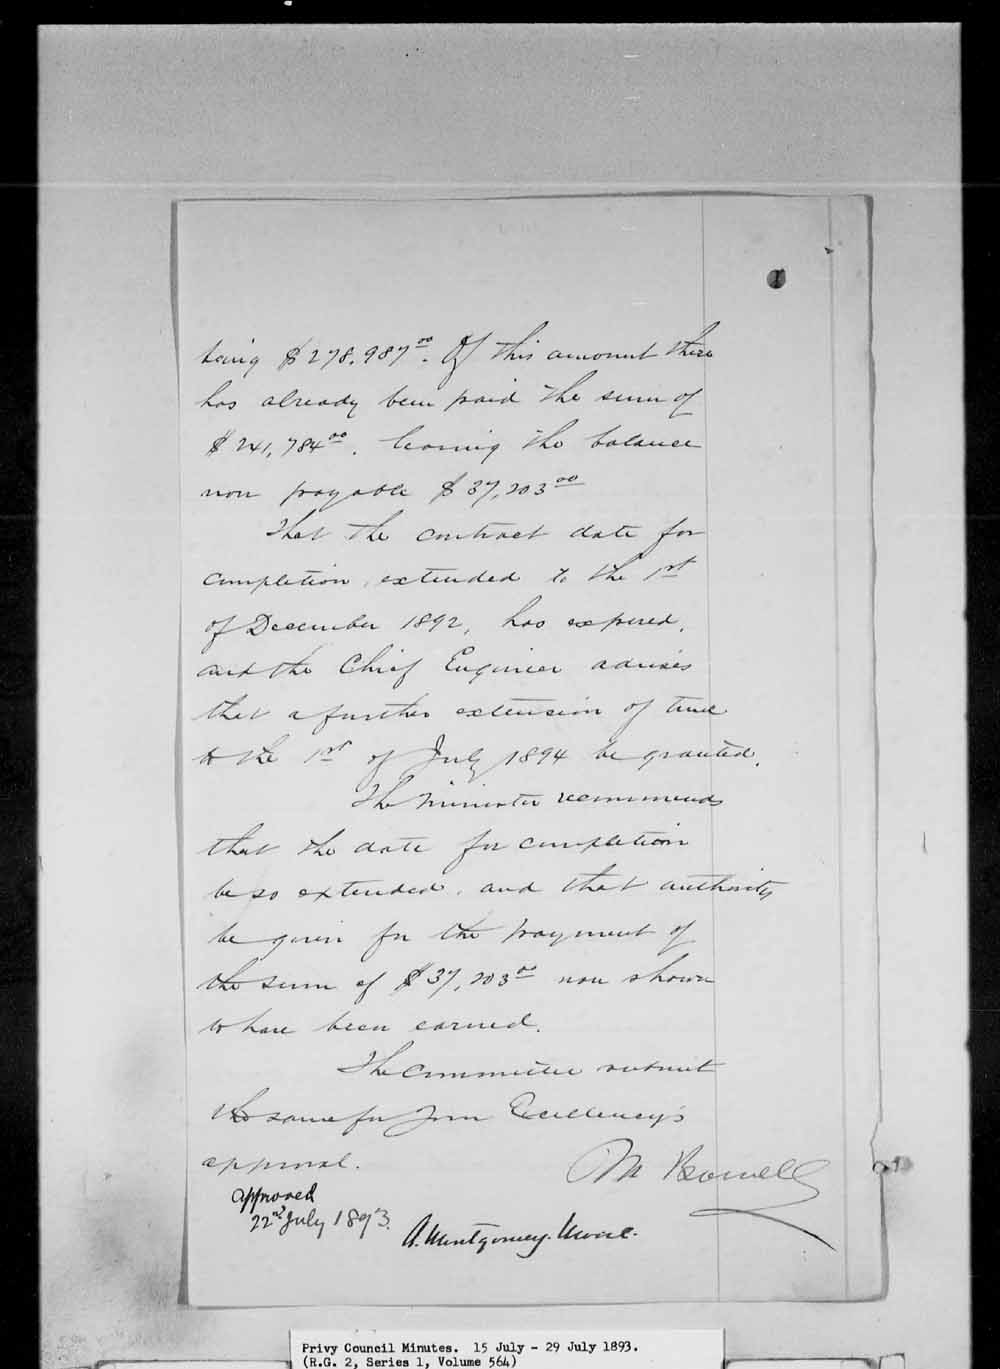 being $278,987.00. Of this amount there
has already been paid the sum of
$241,784.00, leaving the balance
now payable $37,203.00
That the contract date for
completion, extended to the 1st
of December 1892, has expired,
and the Chief Engineer advises
that a further extension of time
to the 1st of July 1894 be granted.
The Minister recommends
that the date for completion
be so extended, and that authority
be given for the payment of
the sum of $37,203.00 now shown
to have been earned.
The Committee submit
the same for Your Excellency's
approval.
M Bowell
Approved
22nd July 1893.
A. Montgomery. Moore.
Privy Council Minutes. 15 July - 29 July 1893.
(R.G. 2, Series 1, Volume 564)